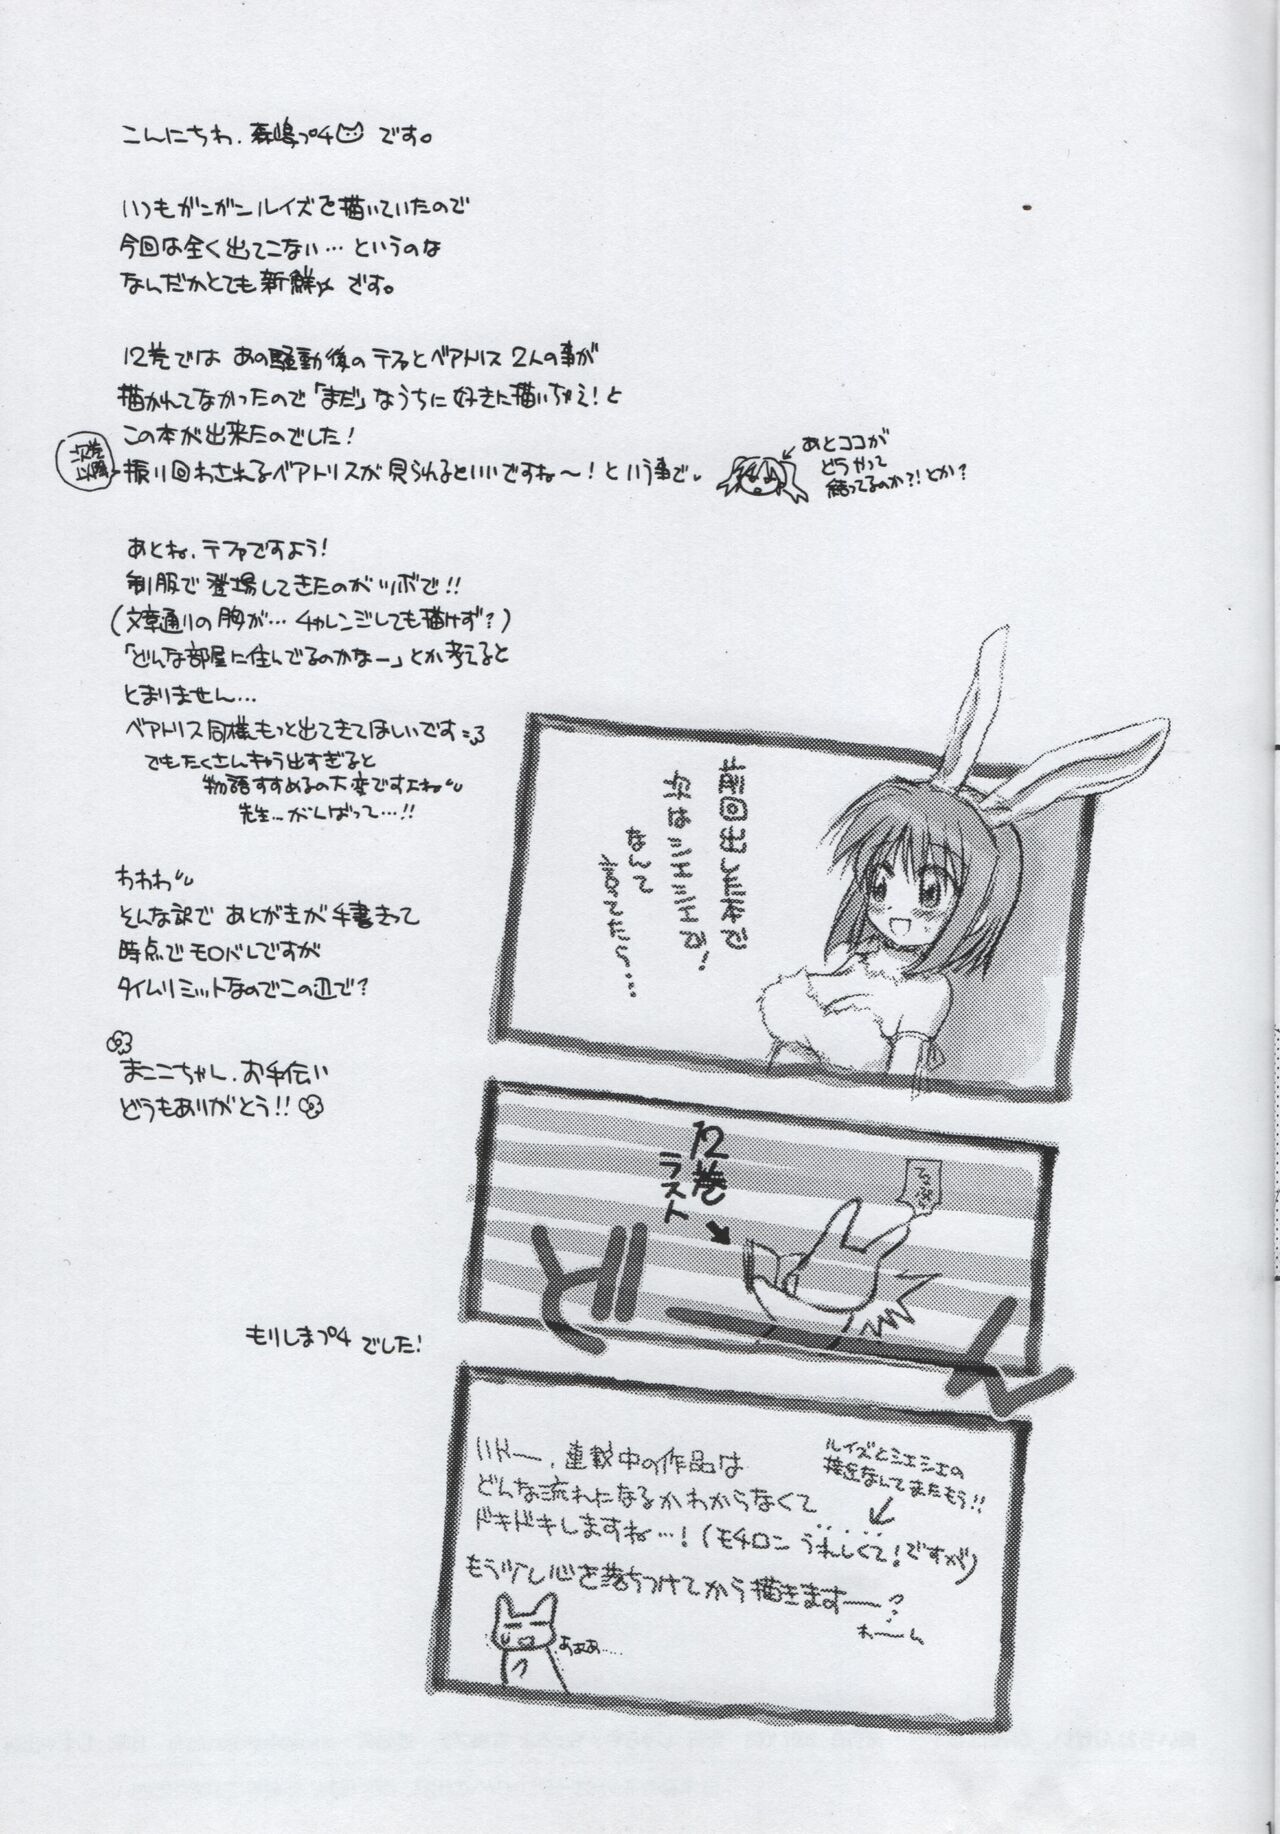 こんにちわ、森嶋プチです。
いつもガンガンルイズを描いていたので
今回は全く出てこない…というのな
なんだかとても新鮮☆です。
12巻では あの騒動後のテファとベアトリス 2人の事が
描かれてなかったので「まだ」なうちに好きに描いちゃえ!と
この本が出来たのでした!
次巻以降
振り回わされるベアトリスが見られるといいですね〜!という事で。
あとココが
どうやって
結ってるのか?!とか?
あとね、テファですよう!
制服で登場してきたのがツボで!!
(文章通りの胸が…チャレンジしても描けず?)
「どんな部屋に住んでるのかなー」とか考えると
とまりません…
ベアトリス同様もっと出てきてほしいです
でもたくさんきゃら出すぎると
物語すすめるの大変ですよね
先生…がんばって…!!
わわわ
そんな訳で あとがきが手書きって
時点でモロバレですが
タイムリミットなのでこの辺で?
まここちゃん、お手伝い
どうもありがとう!!
もりしまプチでした!
前回出した本で
次はシエシエで!
なんて
言ってたら…
12巻
ラスト
ど──ん
いやー、連載中の作品は
どんな流れになるかわからなくて
ドキドキしますね…!(モチロン うれしくて!ですが)
ルイズとシエシエの
接近なんてまたもう!!
もう少し心を落ちつけてから描きますー?
わーーん
あああ……